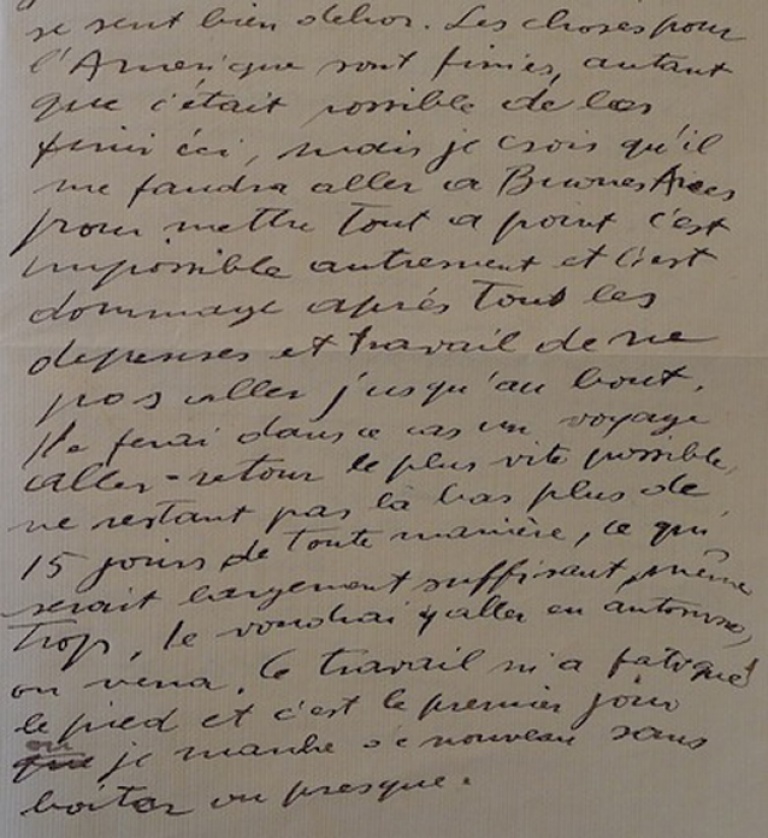 se sent bien dehor. Les choses pour
l'Amerique sont finies, autant
que c'était possible de les
finir ici, mais je crois qu'il
me faudra aller a Buenos Aires
pour mettre tout a point c'est
impossible autrement et c'est
dommage après tous les
depenses et travail de ne
pas aller jusqu'au bout.
Je ferai dans ce cas un voyage
aller-retour le plus vite possible,
ne restant pas là bas plus de
15 jours de toute manière, ce qui
serait largement suffisant, même
trop, Je voudrai y aller en automne,
on verra. Ce travail m'a fatigué
le pied et c'est le premier jour
ou je marche de nouveau sans
boiter ou presque.